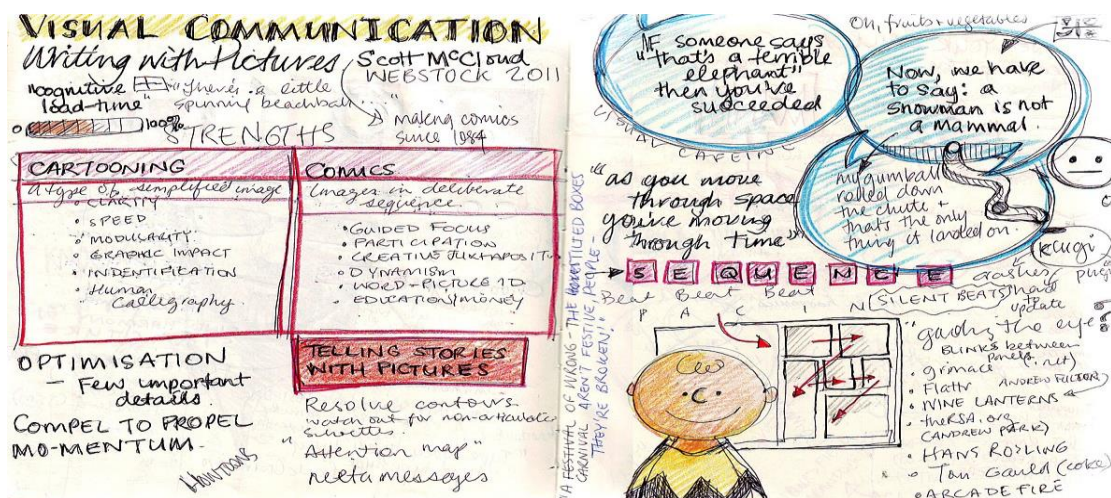 VISUAL COMMUNICATION
Writing with Pictures
Scott McCloud
WEBSTOCK 2011
"cognitive
load-time"
"There's a little
spinning beachball..."
0 100%
making comics
since 1984
STRENGTHS
CARTOONING
A type of simplified image
• CLARITY
• SPEED
• MODULARITY
• GRAPHIC IMPACT
• INDENTIFICATION
• Human
Calligraphy
COMICS
Images in deliberate
sequence
• GUIDED FOCUS
• PARTICIPATION
• CREATIVE
• DYNAMISM
• WORD-PICTURE
• EDUCATION/MONEY
OPTIMISATION
- Few important
details.
COMPEL TO PROPEL
MO-MENTUM.
HOWTOONS
TELLING STORIES
WITH PICTURES
Resolve contours
watch out for
"Attention map"
meta messages
A FESTIVAL OF WRONG - THE BOXES
CARNIVAL AREN'T FESTIVE, PEOPLE -
THEY'RE BROKEN!"
IF someone says
"that's a terrible
elephant"
then you've
succeeded
VISUAL CAFFEINE
Oh, fruits + vegetables
Now, we have
to say: a
snowman is not
a mammal.
my gumball
rolled down
the chute +
that's the only
thing it landed on.
"as you move
through space
you're moving
through time"
SEQUENCE
Beat Beat Beat
P A C I N
(SILENT BEATS)
crashes
update
"guiding the eye"
BLINKS between
panels
• grimace
• Flattr
• NINE LANTERNS
• theRSA.org
(ANDREW PARK)
• HANS ROSLING
• Tom Gauld (coke)
• ARCADE FIRE